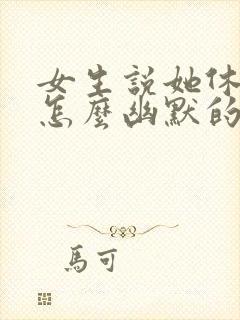 女生說她休
怎麼幽默的
馬可